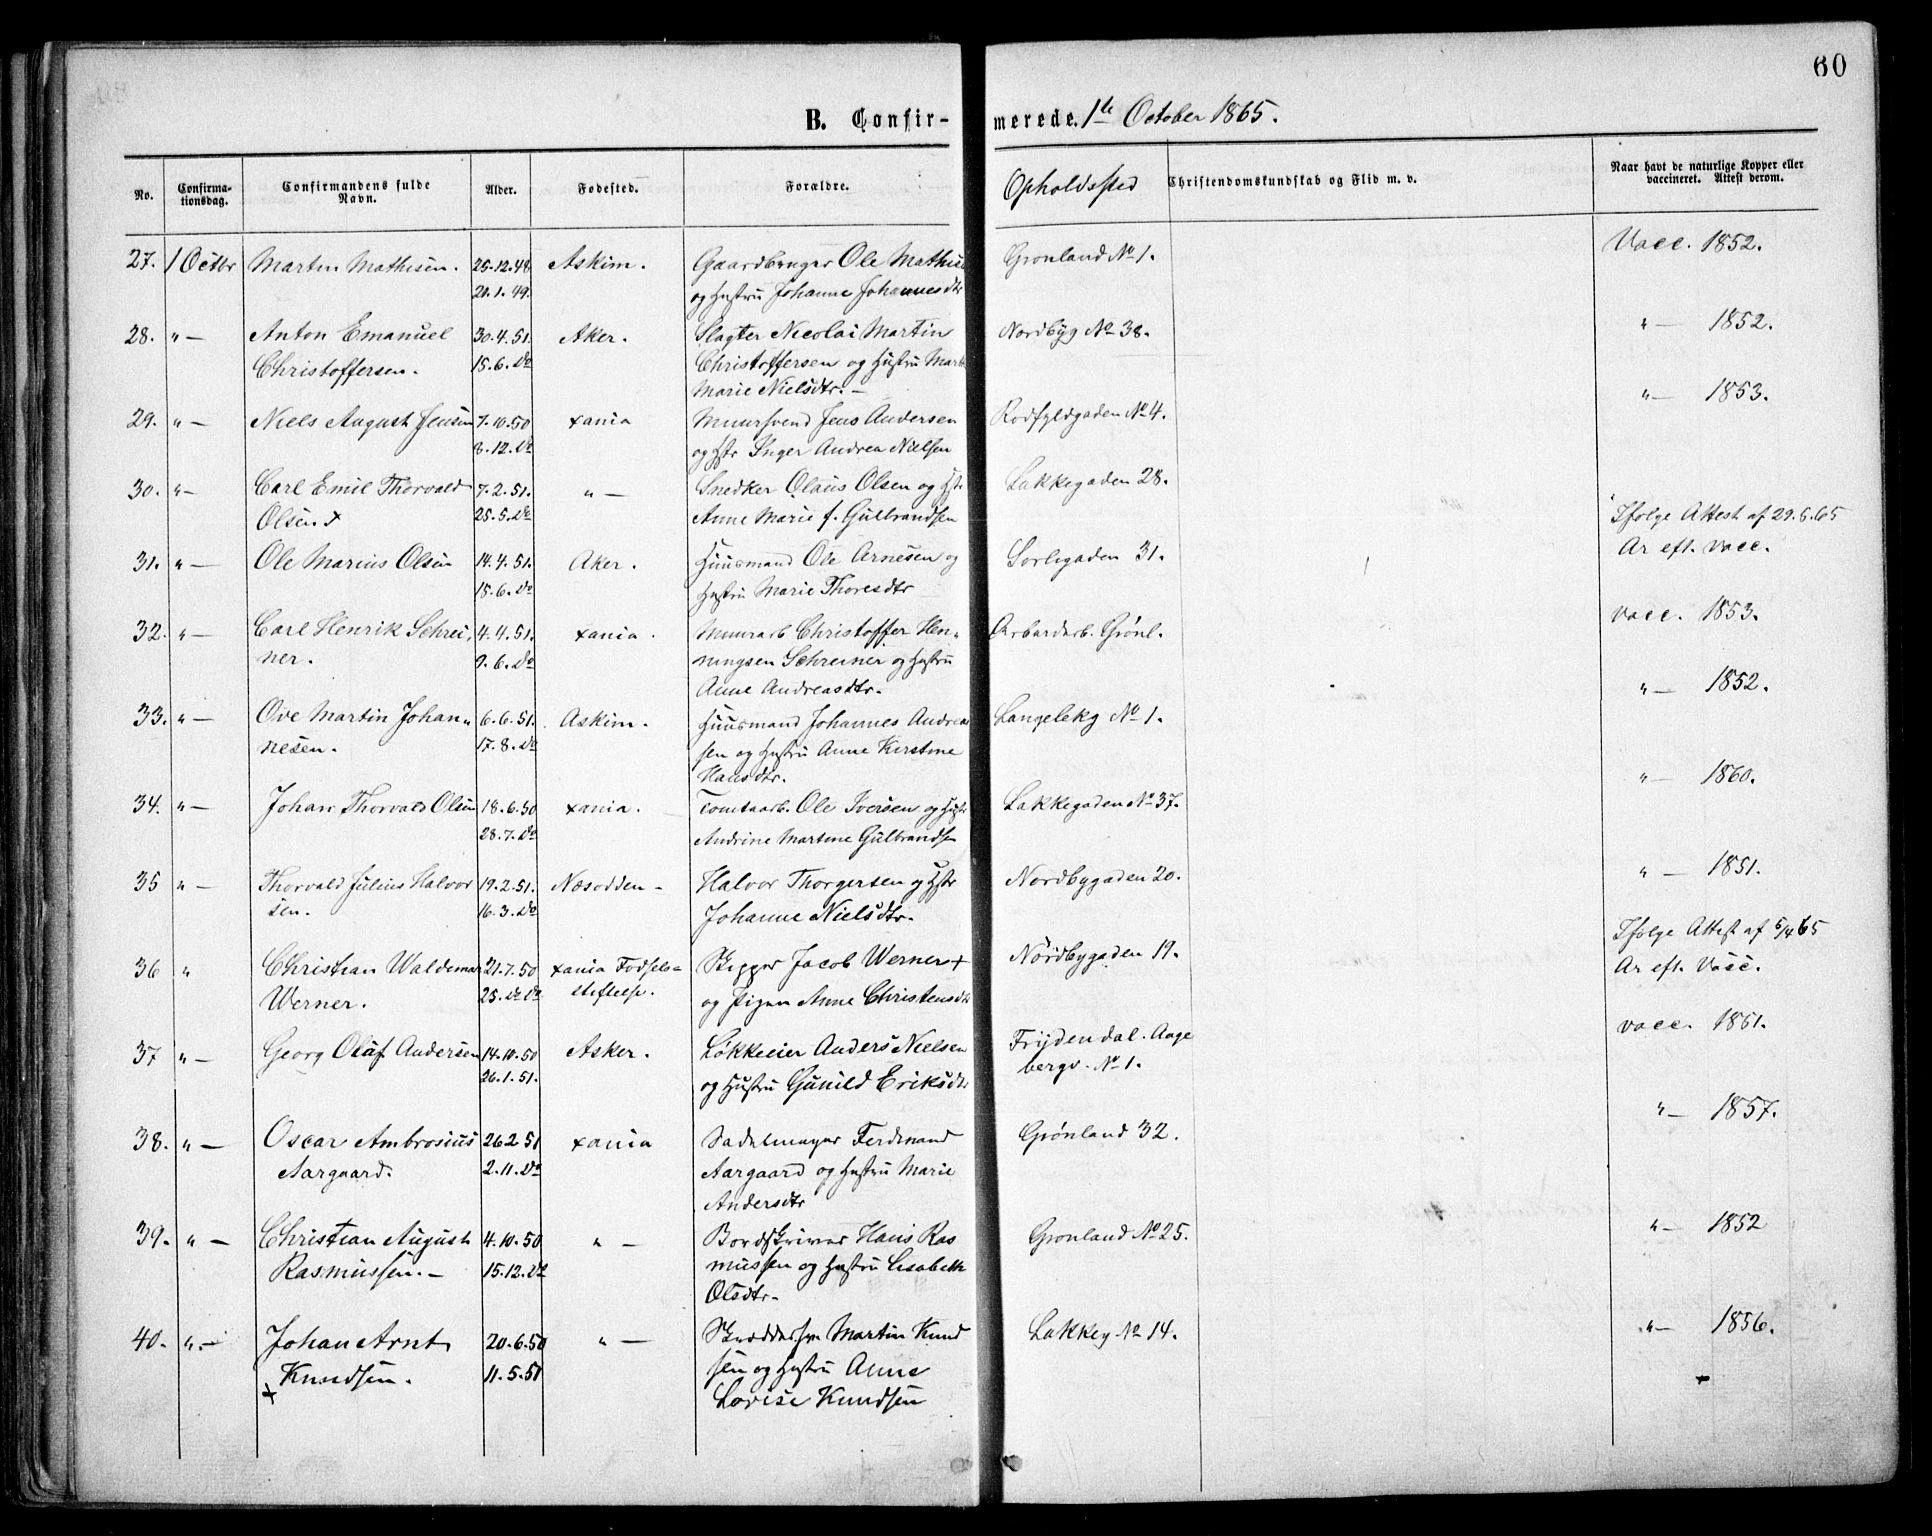 60
B. Confirmerede. 1te October 1865.
No. Confirmationsdag. Confirmandens fulde Navn. Alder. Fødested. Forældre. Opholdssted Christendomskundskab og Flid m. v. Naar havt de naturlige Kopper eller vaccineret. Attest derom.
27. 1 Octbr Martin Mathisen. 25.12.48 Askim. Gaardbruger Ole Mathis Grønland No 1. Vacc. 1852.
20.1.49. og Hustru Johanne Johannesdtr
28. "— Anton Emanuel 30.4.51. Aker. Slagter Nicolai Martin Nordbyg No 38. "— 1852.
Christoffersen. 15.6. Do Christoffersen og Hustru
Marie Nielsdtr.—
29. "— Niels August Jensen 7.10.50 xania Muursvend Jens Andersen Rødfyldgaden No 4. "— 1853.
8.12. Do og Hstr Inger Andrea Nielsen
30. "— Carl Emil Thorvald 7.2.51. "— Snedker Olaus Olsen og Hst. Lakkegaden 28. Ifølge Attest af 29.6.65
Olsen. x 25.5. Do Anne Marie f. Gulbrandsen Ar eft. vacc.
31. "— Ole Marius Olsen 14.4.51. Aker. Huusmand Ole Arnesen og Sørligaden 31.
15.6. Do Hustru Marie Thoresdtr
32. "— Carl Henrik Schrei- 4.4.51. xania. Muurarb Christoffer Hen- Grønl. vacc. 1853.
ner. 9.6. Do ningsen Schreiner og Hustru
Anne Andreasdtr.
33. "— Ove Martin Johan- 6.6.51. Askim. Huusmand Johannes Andrea Langelekg No 1. "— 1852.
nesen. 17.8. Do sen og Hustru Anne Kirstine
Hansdtr.
34. "— Johan Thorvald Olsen 18.6.50 xania. Tomtearb. Ole Iversen og Hustr Lakkegaden No 37. "— 1860.
28.7. Do Andrine Martine Gulbrandsen
35 "— Thorvald Julius Halvor 19.2.51. Næsodden — Halvor Thorgersen og Hstr Nordbygaden 20. "— 1851.
sen. 16.3. Do Johanne Nielsdtr.
36 " Christian Waldemar 21.7.50 xania Fødsels- Skipper Jacob Werner + Nordbygaden 19. Ifølge Attest af 5/4 65
Werner. 25. Do Do stiftelse. og Pigen Anne Christensdtr Ar eft. Vacc.
37 "— Georg Oluf Andersen 14.10.50 Asker. Løkkeeier Anders Nielsen Frydendal. Aage vacc. 1861.
26.1.51. og Hustru Gunild Eriksdtr bergv. No 1.
38. "— Oscar Ambrosius 26 2 51 xania Sadelmager Ferdinand Grønland 32. "— 1857.
Aargaard. 2.11. Do Aargaard og Hustru Marie
Andersdtr
39. "— Christian August 4.10.50 "— Bordskriver Hans Ras Grønland No 25. "— 1852
Rasmussen.— 15.12. Do mussen og Hustru Lisabeth
Olsdtr.
40. "— Johan Arnt 20.6.50 "— Martin Knud Lakkeg No 14. "— 1856.
x Knudsen. 11.5.51 sen og Hustru Anne
Lovise Knudsen